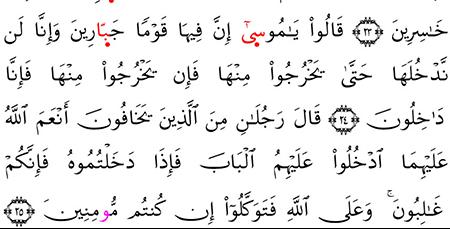 خَٰسِرِينَ ﴿٢٣﴾ قَالُوا۟ يَٰمُوسِىٰٓ إِنَّ فِيهَا قَوْمًا جَبّ۪ارِينَ وَإِنَّا لَن
نَّدْخُلَهَا حَتَّىٰ يَخْرُجُوا۟ مِنْهَا فَإِن يَخْرُجُوا۟ مِنْهَا فَإِنَّا
دَٰخِلُونَ ﴿٢٤﴾ قَالَ رَجُلَٰنِ مِنَ ٱلَّذِينَ يَخَافُونَ أَنْعَمَ ٱللَّهُ
عَلَيْهِمَا ٱدْخُلُوا۟ عَلَيْهِمُ ٱلْبَابَ فَإِذَا دَخَلْتُمُوهُ فَإِنَّكُمْ
غَٰلِبُونَ ۚ وَعَلَى ٱللَّهِ فَتَوَكَّلُوٓا۟ إِن كُنتُم مُّومِنِينَ ﴿٢٥﴾